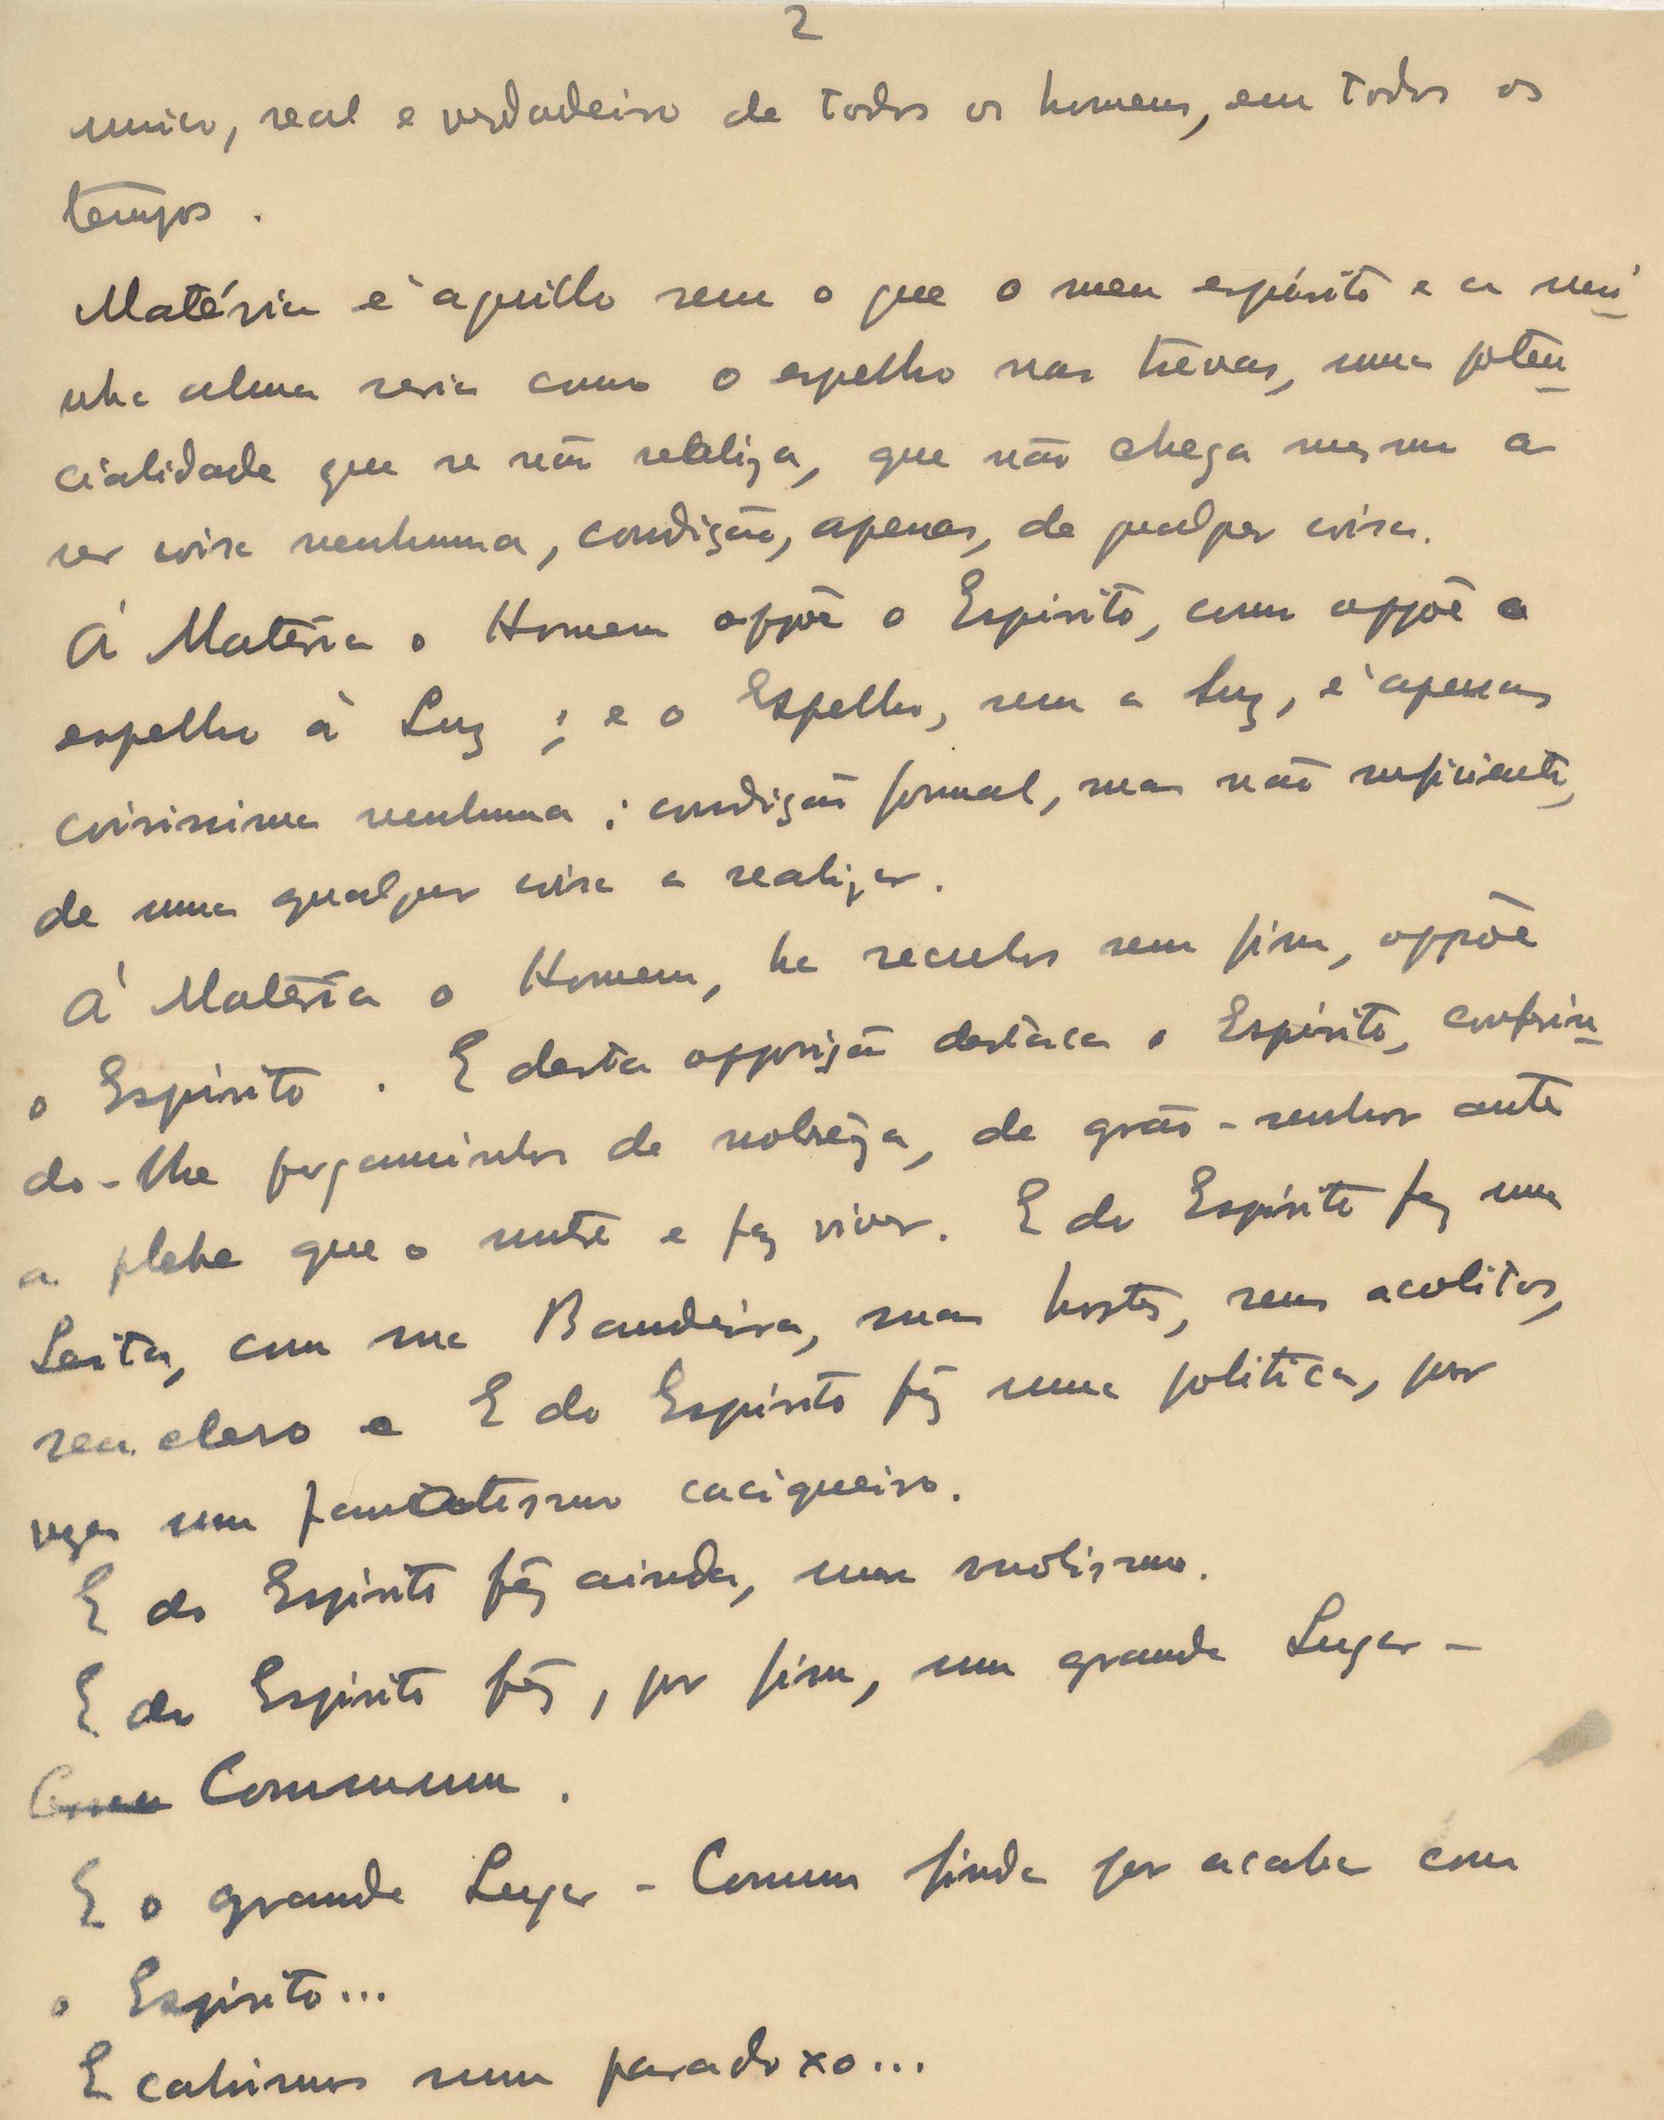 2
unico, real e verdadeiro de todos os homens, em todos os
tempos.
Matéria é aquillo sem o que o meu espírito e a mi-
nha alma seria como o espelho nas trevas, uma poten-
cialidade que se não realiza, que não chega mesmo a
ser coisa nenhuma, condição, apenas, de qualquer coisa.
Á Matéria o Homem oppõe o Espirito, como oppõe o
espelho à Luz; e o Espelho, sem a Luz, é apenas
coisissima nenhuma: condição formal, mas não suficiente,
de uma qualquer coisa a realizar.
Á Matéria o Homem, ha seculos sem fim, oppõe
o Espírito. E desta opposição destaca o Espírito, conferin-
do-lhe pergaminhos de nobrêza, de grão-senhor ante
a plebe que o nutre e faz viver. E do Espírito fez uma
Seita, com sua Bandeira, suas hostes, seus acolitos,
seu clero e E do Espírito fêz uma politica, por
vezes um fanatismo caciqueiro.
E do Espírito fêz ainda, um snobismo.
E do Espírito fêz, por fim, um grande Lugar-
Commum.
E o grande Lugar-Comum finda por acabar com
o Espirito...
E cahimos num paradoxo...